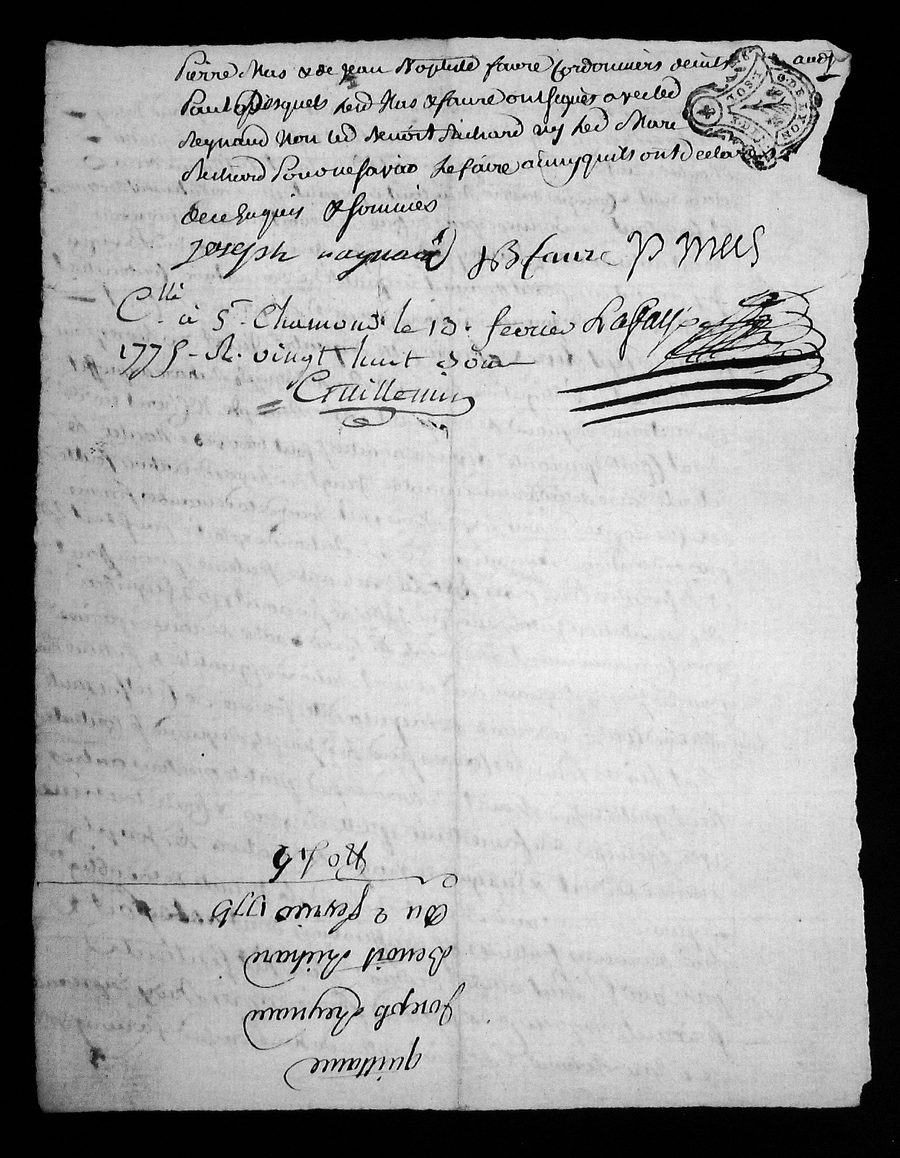 Pierre Mas & de Jean Baptiste faure Cordonniers
led Mas & faure ont signés avec led
Reynaud Non led Benoit Richard ny led Marc
Richard Pour ne savoir Le faire ainsy quils ont declaré
de ce Enquis & sommés
joseph raynaud JB faure P mas
C.lé à St. Chamond le 13. fevrier Lafay
1775. R. vingt huit sous
Guillemin
G. DE LYON
quittance
Joseph Reynaud
Benoit Richard
Du 2 fevrier 1775
No